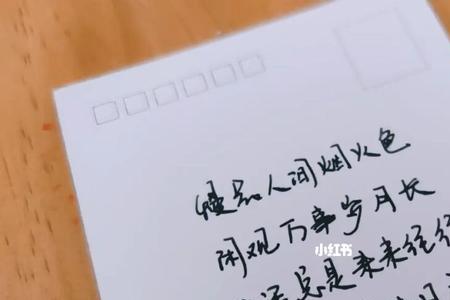 慢品人间烟火色
闲观万事岁月长
小红书
总是来来往往